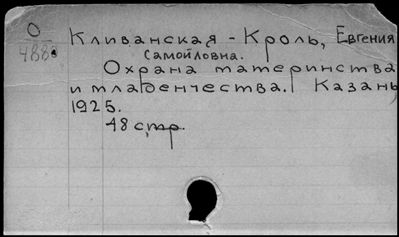 О
488
Кливанская - Кроль, Евгения
Самойловна.
Охрана материнства
и младенчества. Казань
1925.
48 стр.